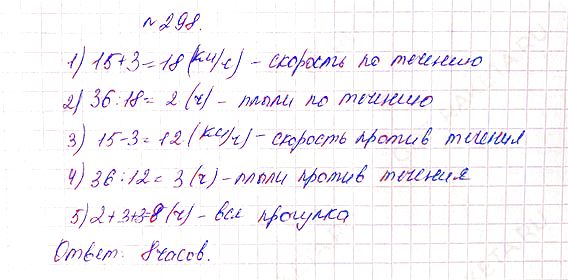 №298.
1) 15+3=18 (км/ч) – скорость по течению
2) 36:18= 2 (ч) – плыли по течению
3) 15-3=12 (км/ч) – скорость против течения
4) 36:12= 3 (ч) – плыли против течения
5) 2+3+3=8 (ч) – вся прогулка
Ответ: 8 часов.